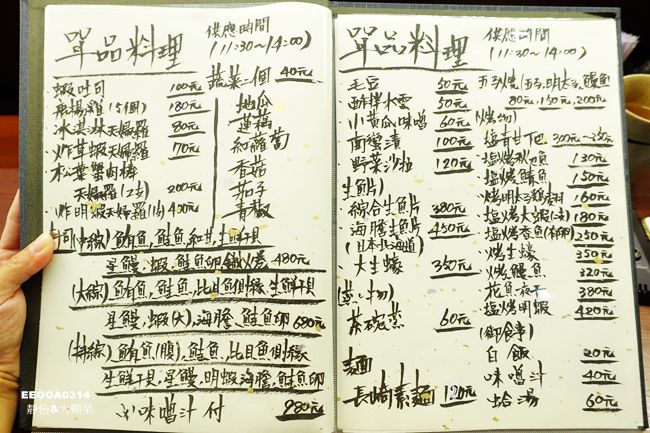 單品料理
供應時間
(11:30~14:00)
蝦吐司 100元
180元
冰淇淋天婦羅 80元
炸草蝦天婦羅 70元
松葉蟹肉棒
天婦羅(2本) 200元
炸明蝦天婦羅(1本) 400元
蔬菜二個 40元
地瓜
蓮藕
紅蘿蔔
香菇
茄子
青椒
星鰻,蝦,鮭魚卵 480元
(大綜)鮪魚,鮭魚,比目魚側緣,生鮮干貝
星鰻,蝦(大),海膽,鮭魚卵 680元
(特綜)鮪魚(腹),鮭魚,比目魚側緣
生鮮干貝,星鰻,明蝦,海膽,鮭魚卵
味噌汁付 980元
單品料理
供應時間
(11:30~14:00)
毛豆 50元
酢拌水雲 50元
小黃瓜味噌 60元
南蠻漬 100元
野菜沙拉 120元
(生魚片)
綜合生魚片 380元
海膽生魚片 450元
(日本北海道)
大生蠔 350元
(蒸し物)
茶碗蒸 60元
麵
長崎素麵 120元
玉子燒(玉子,明太子,鰻魚)
80元,150元,200元
(燒物)
塩烤魚下巴
130元
塩烤鯖魚 150元
烤明太子雞翅 160元
塩烤大蝦(2本) 180元
塩烤香魚(有卵) 250元
烤生蠔 350元
烤鰻魚 320元
花魚一夜干 380元
塩烤明蝦 420元
(御食事)
白飯 20元
味噌汁 40元
蛤湯 60元
EEOOA0314
靜怡&大顆呆